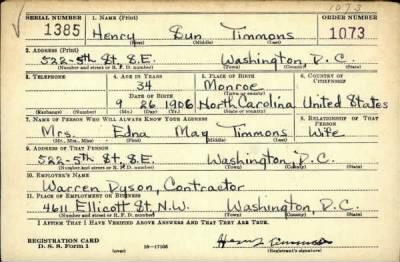 1073
SERIAL NUMBER 1. NAME (Print) ORDER NUMBER
1385 Henry Sun Timmons 1073
(First) (Middle) (Last)
2. ADDRESS (Print)
522-5th St. S.E. Washington, D.C.
(Number and street or R. F. D. number) (Town) (County) (State)
3. TELEPHONE 4. AGE IN YEARS 5. PLACE OF BIRTH 6. COUNTRY OF CITIZENSHIP
34 Monroe
DATE OF BIRTH (Town or county)
9 26 1906 North Carolina United States
(Exchange) (Number) (Mo.) (Day) (Yr.) (State or country)
7. NAME OF PERSON WHO WILL ALWAYS KNOW YOUR ADDRESS 8. RELATIONSHIP OF THAT PERSON
Mrs. Edna May Timmons Wife
(Mr., Mrs., Miss) (First) (Middle) (Last)
9. ADDRESS OF THAT PERSON
522-5th St., S.E. Washington, D.C.
(Number and street or R. F. D. number) (Town) (County) (State)
10. EMPLOYER'S NAME
Warren Dyson, Contractor
11. PLACE OF EMPLOYMENT OR BUSINESS
4611 Ellicott St. N.W. Washington, D.C.
(Number and street or R. F. D. number) (Town) (County) (State)
I AFFIRM THAT I HAVE VERIFIED ABOVE ANSWERS AND THAT THEY ARE TRUE.
REGISTRATION CARD
D. S. S. Form 1 (over) 16-17105